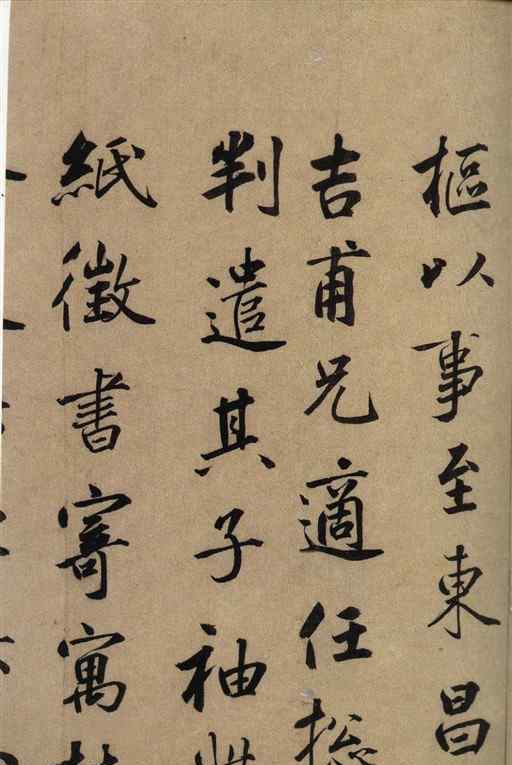 樞以事至東昌
吉甫兄適任総
判遣其子袖
紙徵書寄寓